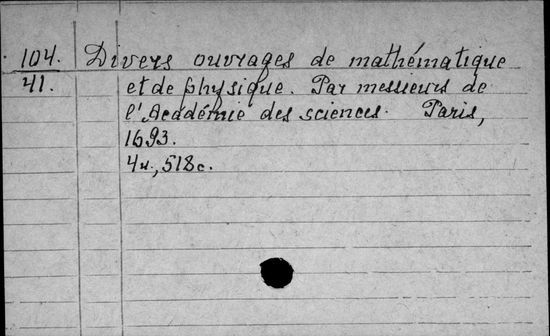 104. Divers ouvrages de mathématique
41. et de physique. Par messieurs de
l'Académie des sciences. Paris,
1693.
4н., 518с.